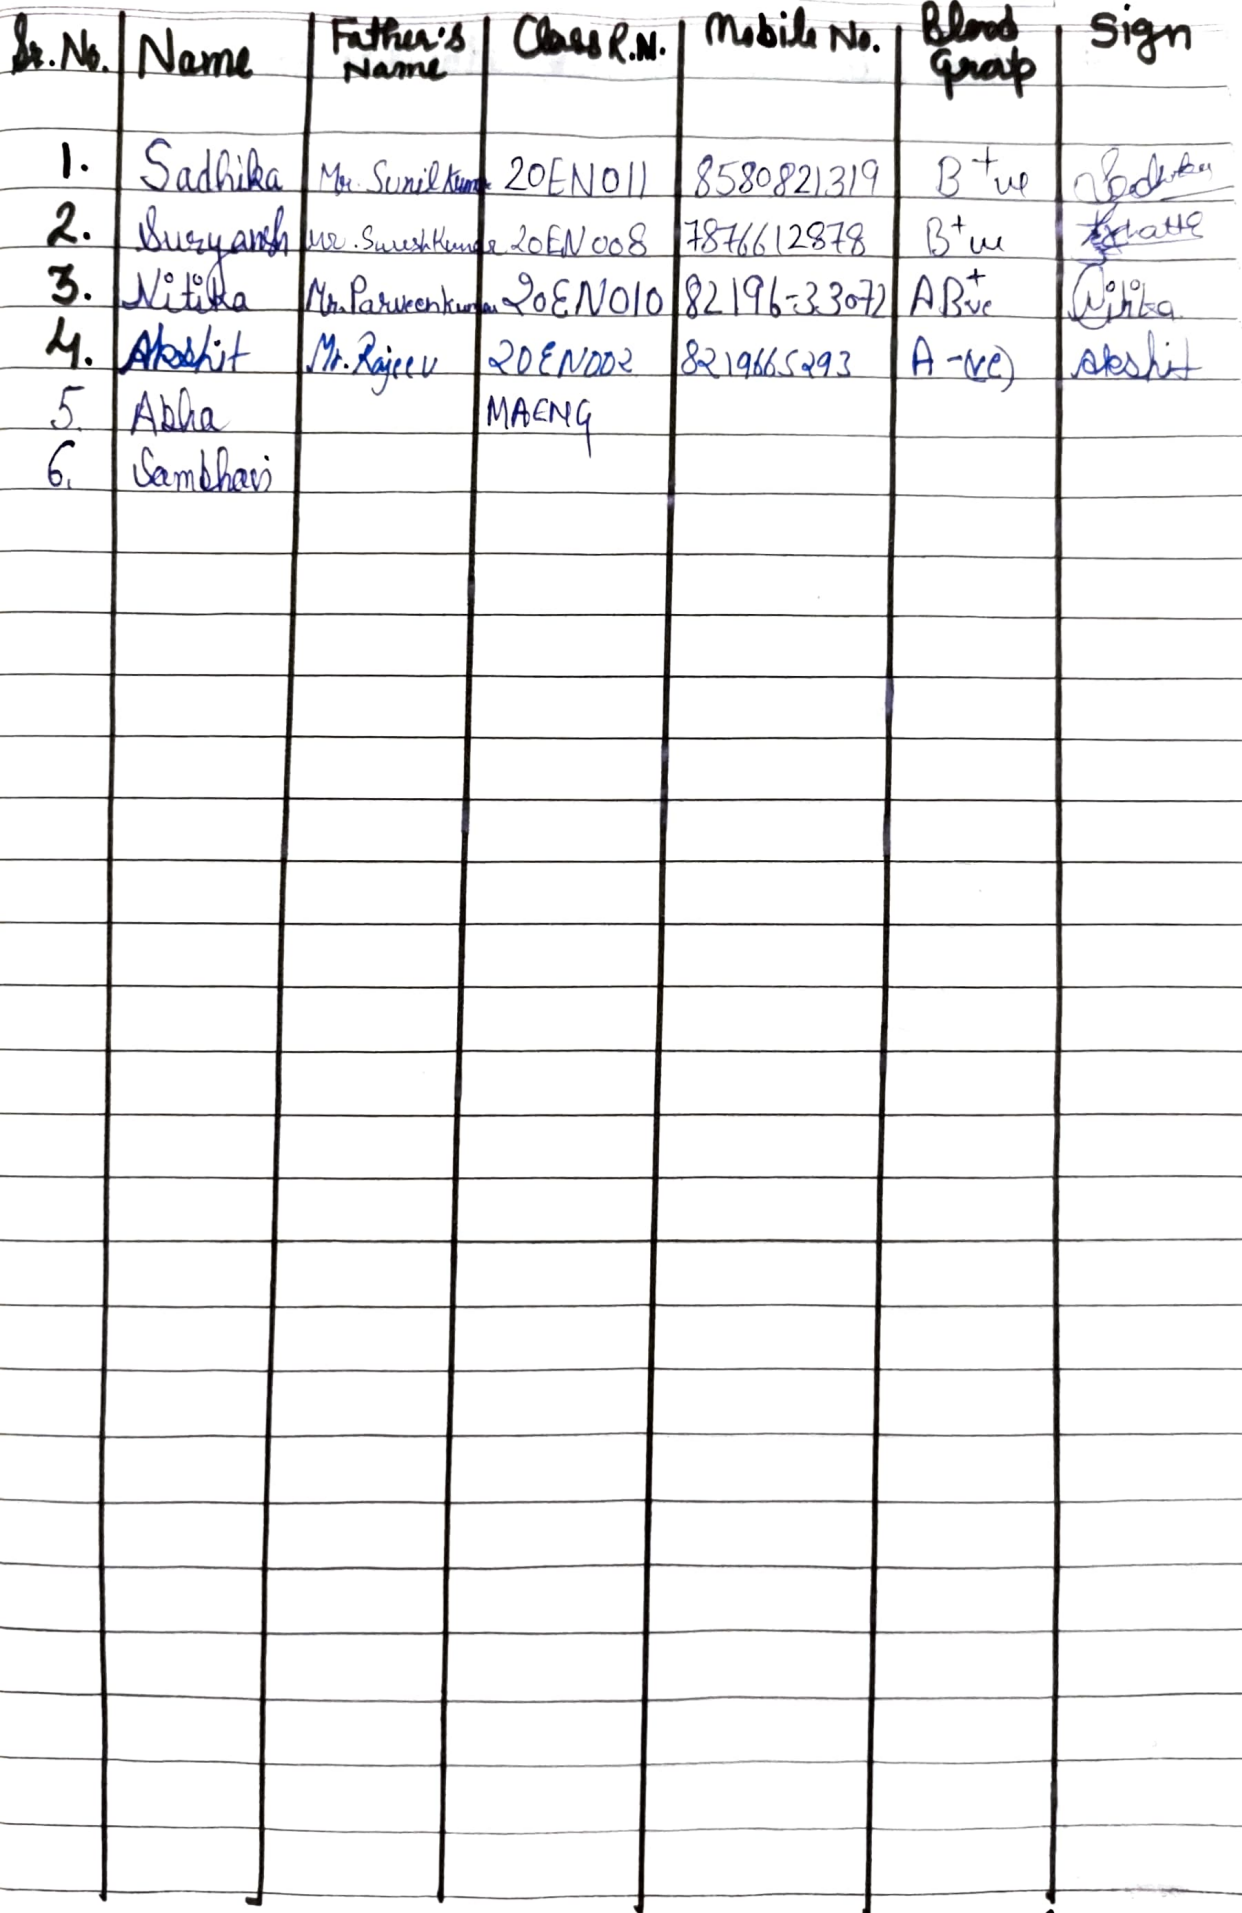 Sr. No. Name Father's Name Class R.N. Mobile No. Blood Group Sign
1. Sadhika Mr. Sunil Kumar 20EN011 8580821319 B+ve Sadhika
2. Suryansh Mr. Suresh Kumar 20EN008 7876612878 B+ve
3. Nitika Mr. Parveen kumar 20EN010 82196-33072 AB+ve Nitika
4. Akshit Mr. Rajeev 20EN002 8219665293 A-(ve) Akshit
5. Abha MAENG
6. Sambhavi